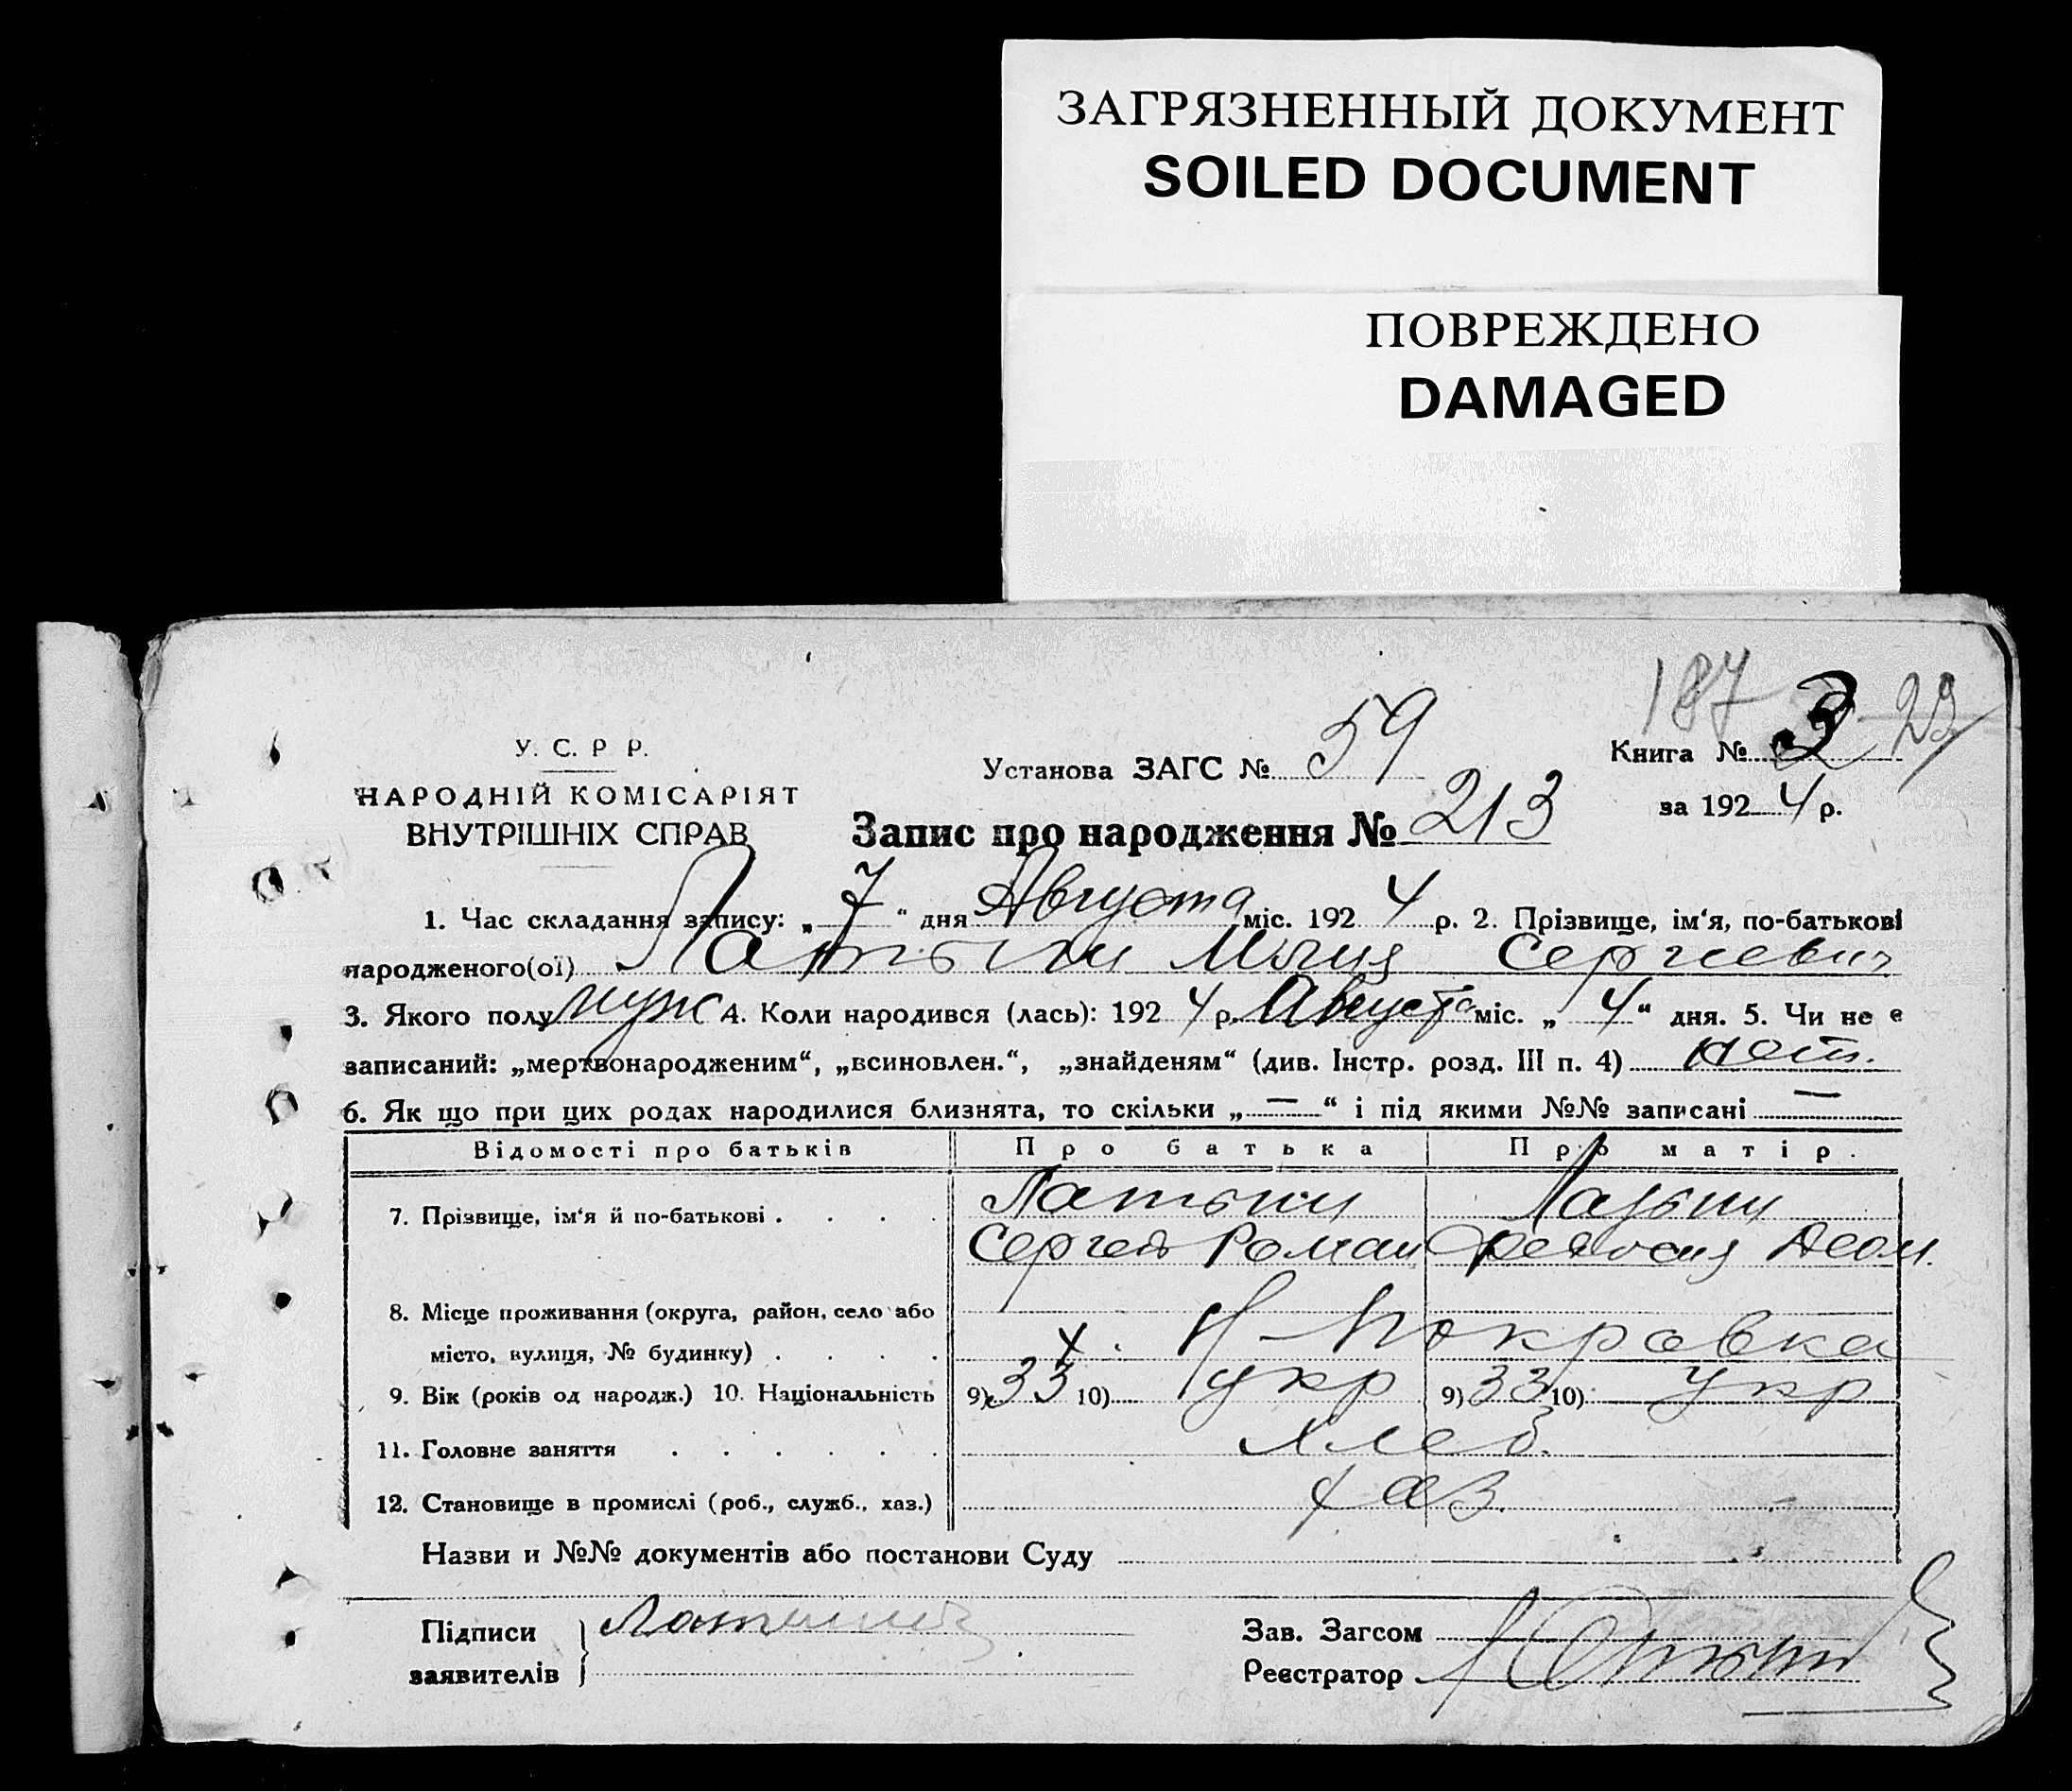 ЗАГРЯЗНЕННЫЙ ДОКУМЕНТ
SOILED DOCUMENT
ПОВРЕЖДЕНО
DAMAGED
187
У. С. Р Р.
НАРОДНІЙ КОМІСАРІЯТ
ВНУТРІШНІХ СПРАВ
Установа ЗАГС № 59
Книга №
за 1924 р.
Запис про народження № 213
1. Час складання запису: „7“ дня Августа міс. 1924 р. 2. Прізвище, ім‘я, по-батькові
народженого(ої) Латыш Сергиевич
3. Якого полу муж 4. Коли народився (лась): 1924 р. Августа міс. „4“ дня. 5. Чи не е
записаний: „мертвонародженим“, „всиновлен.“, „знайденям“ (див. Інстр. розд. III п. 4) нет.
6. Як що при цих родах народилися близнята, то скільки „—“ і під якими №№ записані —
Відомості про батьків Про батька Про матір.
7. Прізвище, ім‘я й по-батькові . . . . Латыш
Сергей Роман
8. Місце проживання (округа, район, село або
місто, вулиця, № будинку) . . . . х. Н-Покровка
9. Вік (років од народж.) 10. Національність 9) 33 10) укр 9) 33 10) укр
11. Головне заняття . . . . . . Хлеб.
12. Становище в промислі (роб., служб., хаз.) хаз.
Назви и №№ документів або постанови Суду
Підписи
заявителів
Зав. Загсом
Реєстратор